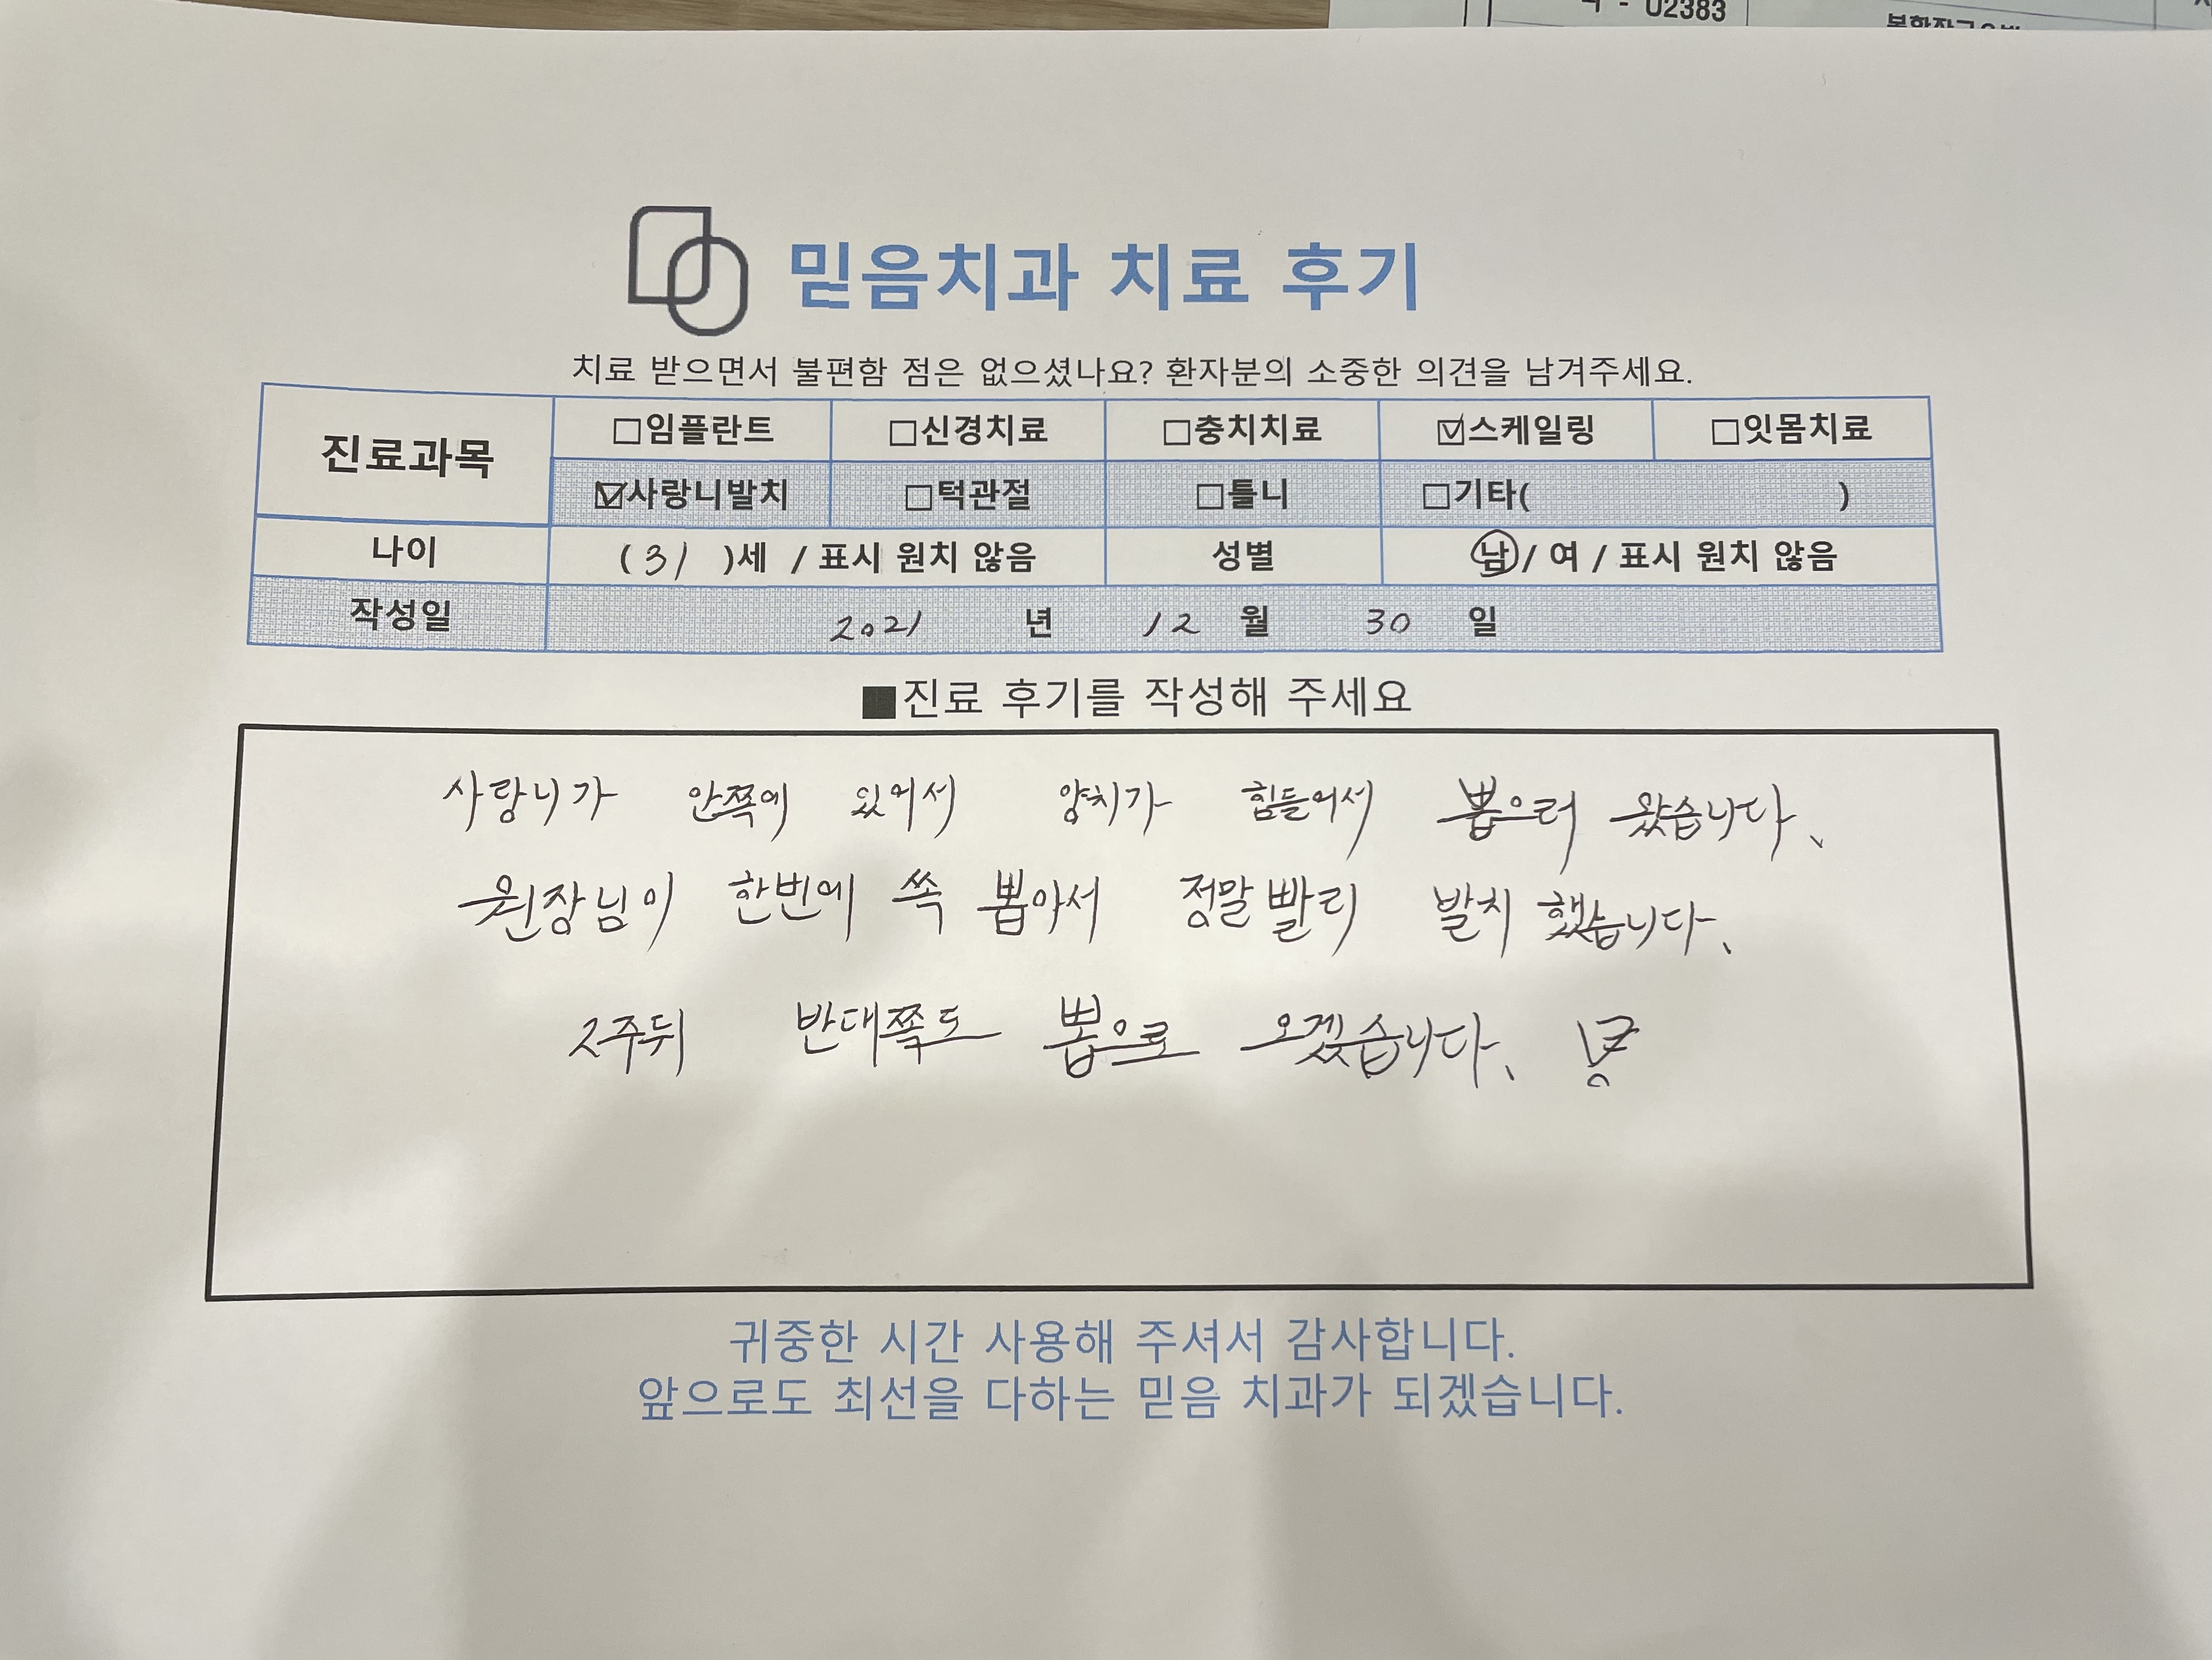 - 02383
믿음치과 치료 후기
치료 받으면서 불편함 점은 없으셨나요? 환자분의 소중한 의견을 남겨주세요.
진료과목
□임플란트 □신경치료 □충치치료 ☑스케일링 □잇몸치료
☑사랑니발치 □턱관절 □틀니 □기타( )
나이 (31 )세 / 표시 원치 않음 성별 남/ 여 / 표시 원치 않음
작성일 2021 년 12 월 30 일
■진료 후기를 작성해 주세요
사랑니가 안쪽에 있어서 양치가 힘들어서 뽑으러 왔습니다.
원장님이 한번에 쏙 뽑아서 정말 빨리 발치 했습니다.
2주뒤 반대쪽도 뽑으로 오겠습니다.
귀중한 시간 사용해 주셔서 감사합니다.
앞으로도 최선을 다하는 믿음 치과가 되겠습니다.